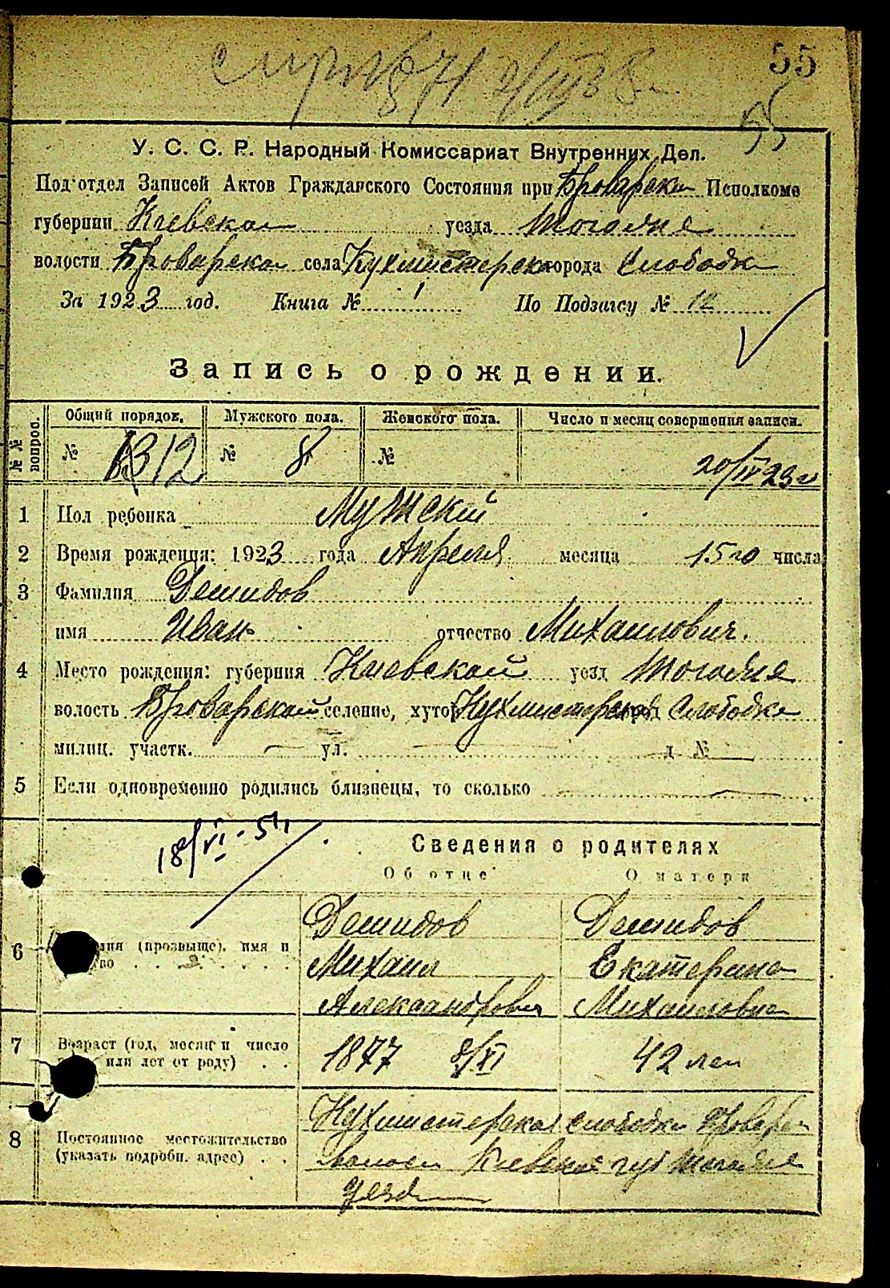 55
871
55
У. С. С. Р. Народный Комиссариат Внутренних Дел.
Под'отдел Записей Актов Гражданского Состояния при Броварск Исполкоме
губернии Киевской уезда тогоже
волости Броварской села Кухмистерск города Слободки
За 1923 год. Книга № 1 По Подзагсу № 12
Запись о рождении.
№№ вопроб. Общий порядок. Мужского пола. Женского пола. Число и месяц совершения записи.
№ 12 № 8 № 20/IV 23 г
1 Пол ребенка Мужский
2 Время рождения: 1923 года Апреля месяца 15 го числа
3 Фамилия Демидов
имя Иван отчество Михаилович.
4 Место рождения: губерния Киевской уезд тогоже
волость Броварской селение, хутор Кухмистерской город Слободке
милиц. участк. — ул. — д № —
5 Если одновременно родились близнецы, то сколько —
18/VI-51
Сведения о родителях
Об отце О матери
6 (прозвище), имя и Демидов Демидов
Михаил Екатерина
Александрович Михаиловна
7 Возраст (год, месяц и число 1877 8/XI 42 лет
или лет от роду) . .
8 Постоянное местожительство Кухмистерская слободки Броварск
(указать подробн. адрес) . . волости Киевской губ тогоже
уезд